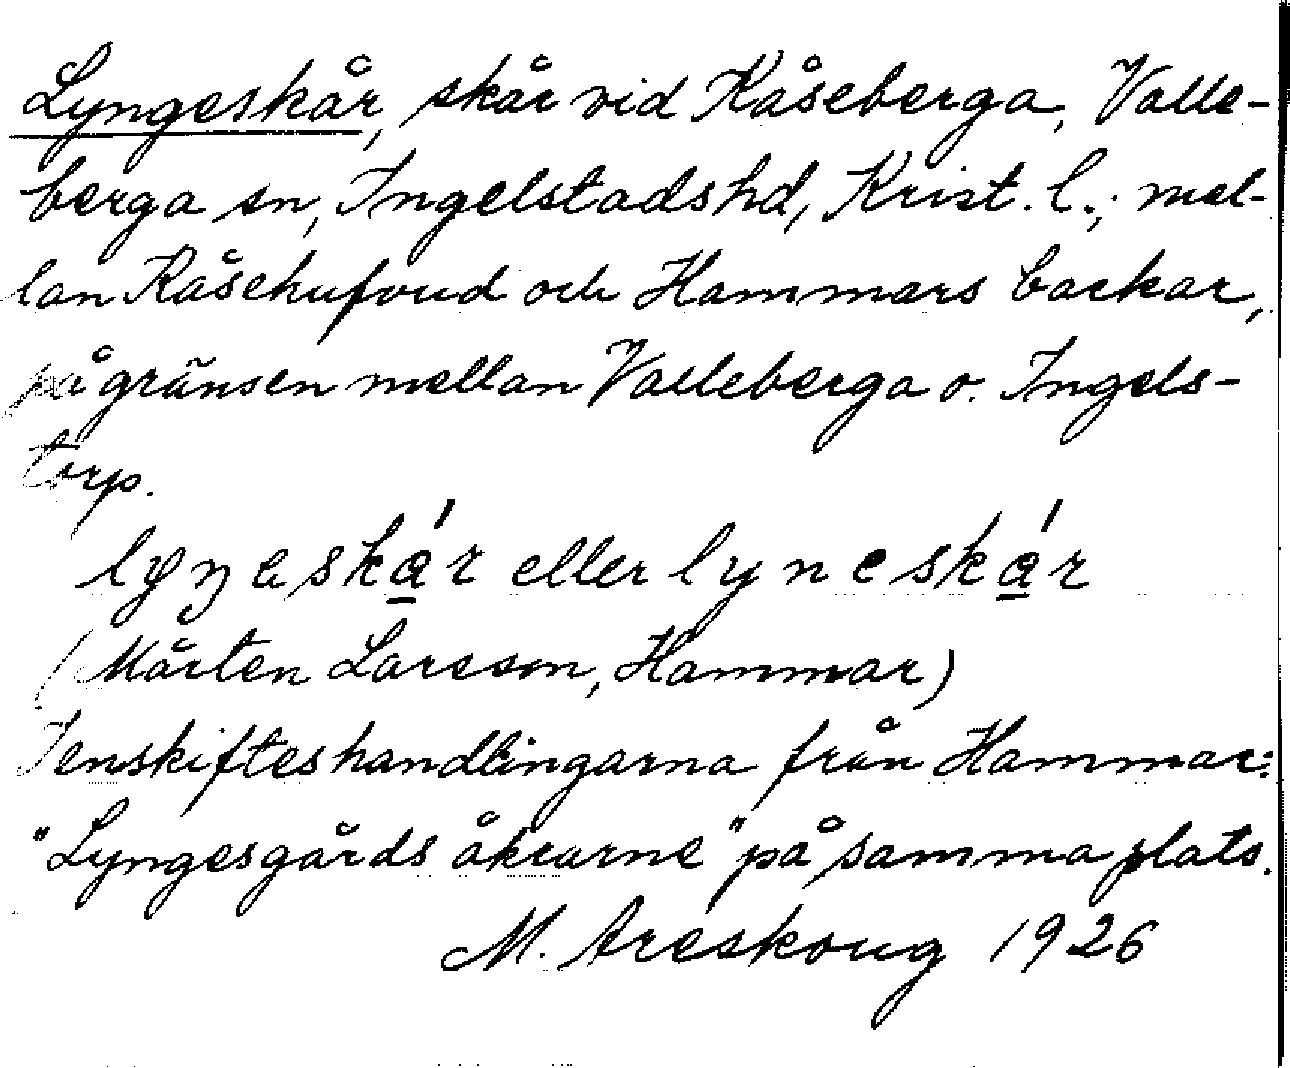 Lyngeskår, skår vid Kåseberga, Valle-
berga sn, Ingelstads hd, Krist. l.; mel-
lan Kåsehufvud och Hammars backar,
på gränsen mellan Valleberga o. Ingels-
torp.
lyŋeská̱r eller lyneská̱r
(Mårten Larsson, Hammar)
I enskifteshandlingarna från Hammar:
"Lyngesgårds åkrarne" på samma plats.
M. Areskoug 1926